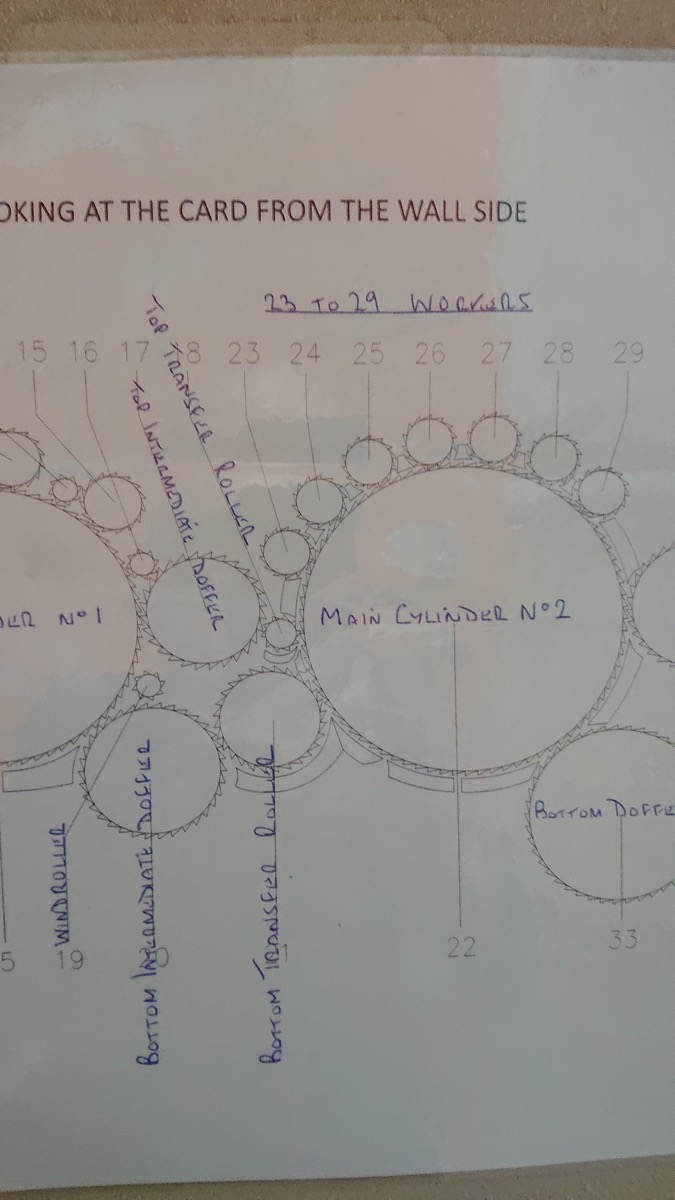 OKING AT THE CARD FROM THE WALL SIDE
23 TO 29 WORKERS
15 16 17 18 23 24 25 26 27 28 29
TOP TRANSFER ROLLER
TOP INTERMEDIATE DOFFER
DER Nº1
MAIN CYLINDER Nº2
BOTTOM DOFFE
WINDROLLER
BOTTOM INTERMEDIATE DOFFER
BOTTOM TRANSFER ROLLER
5 19 22 33